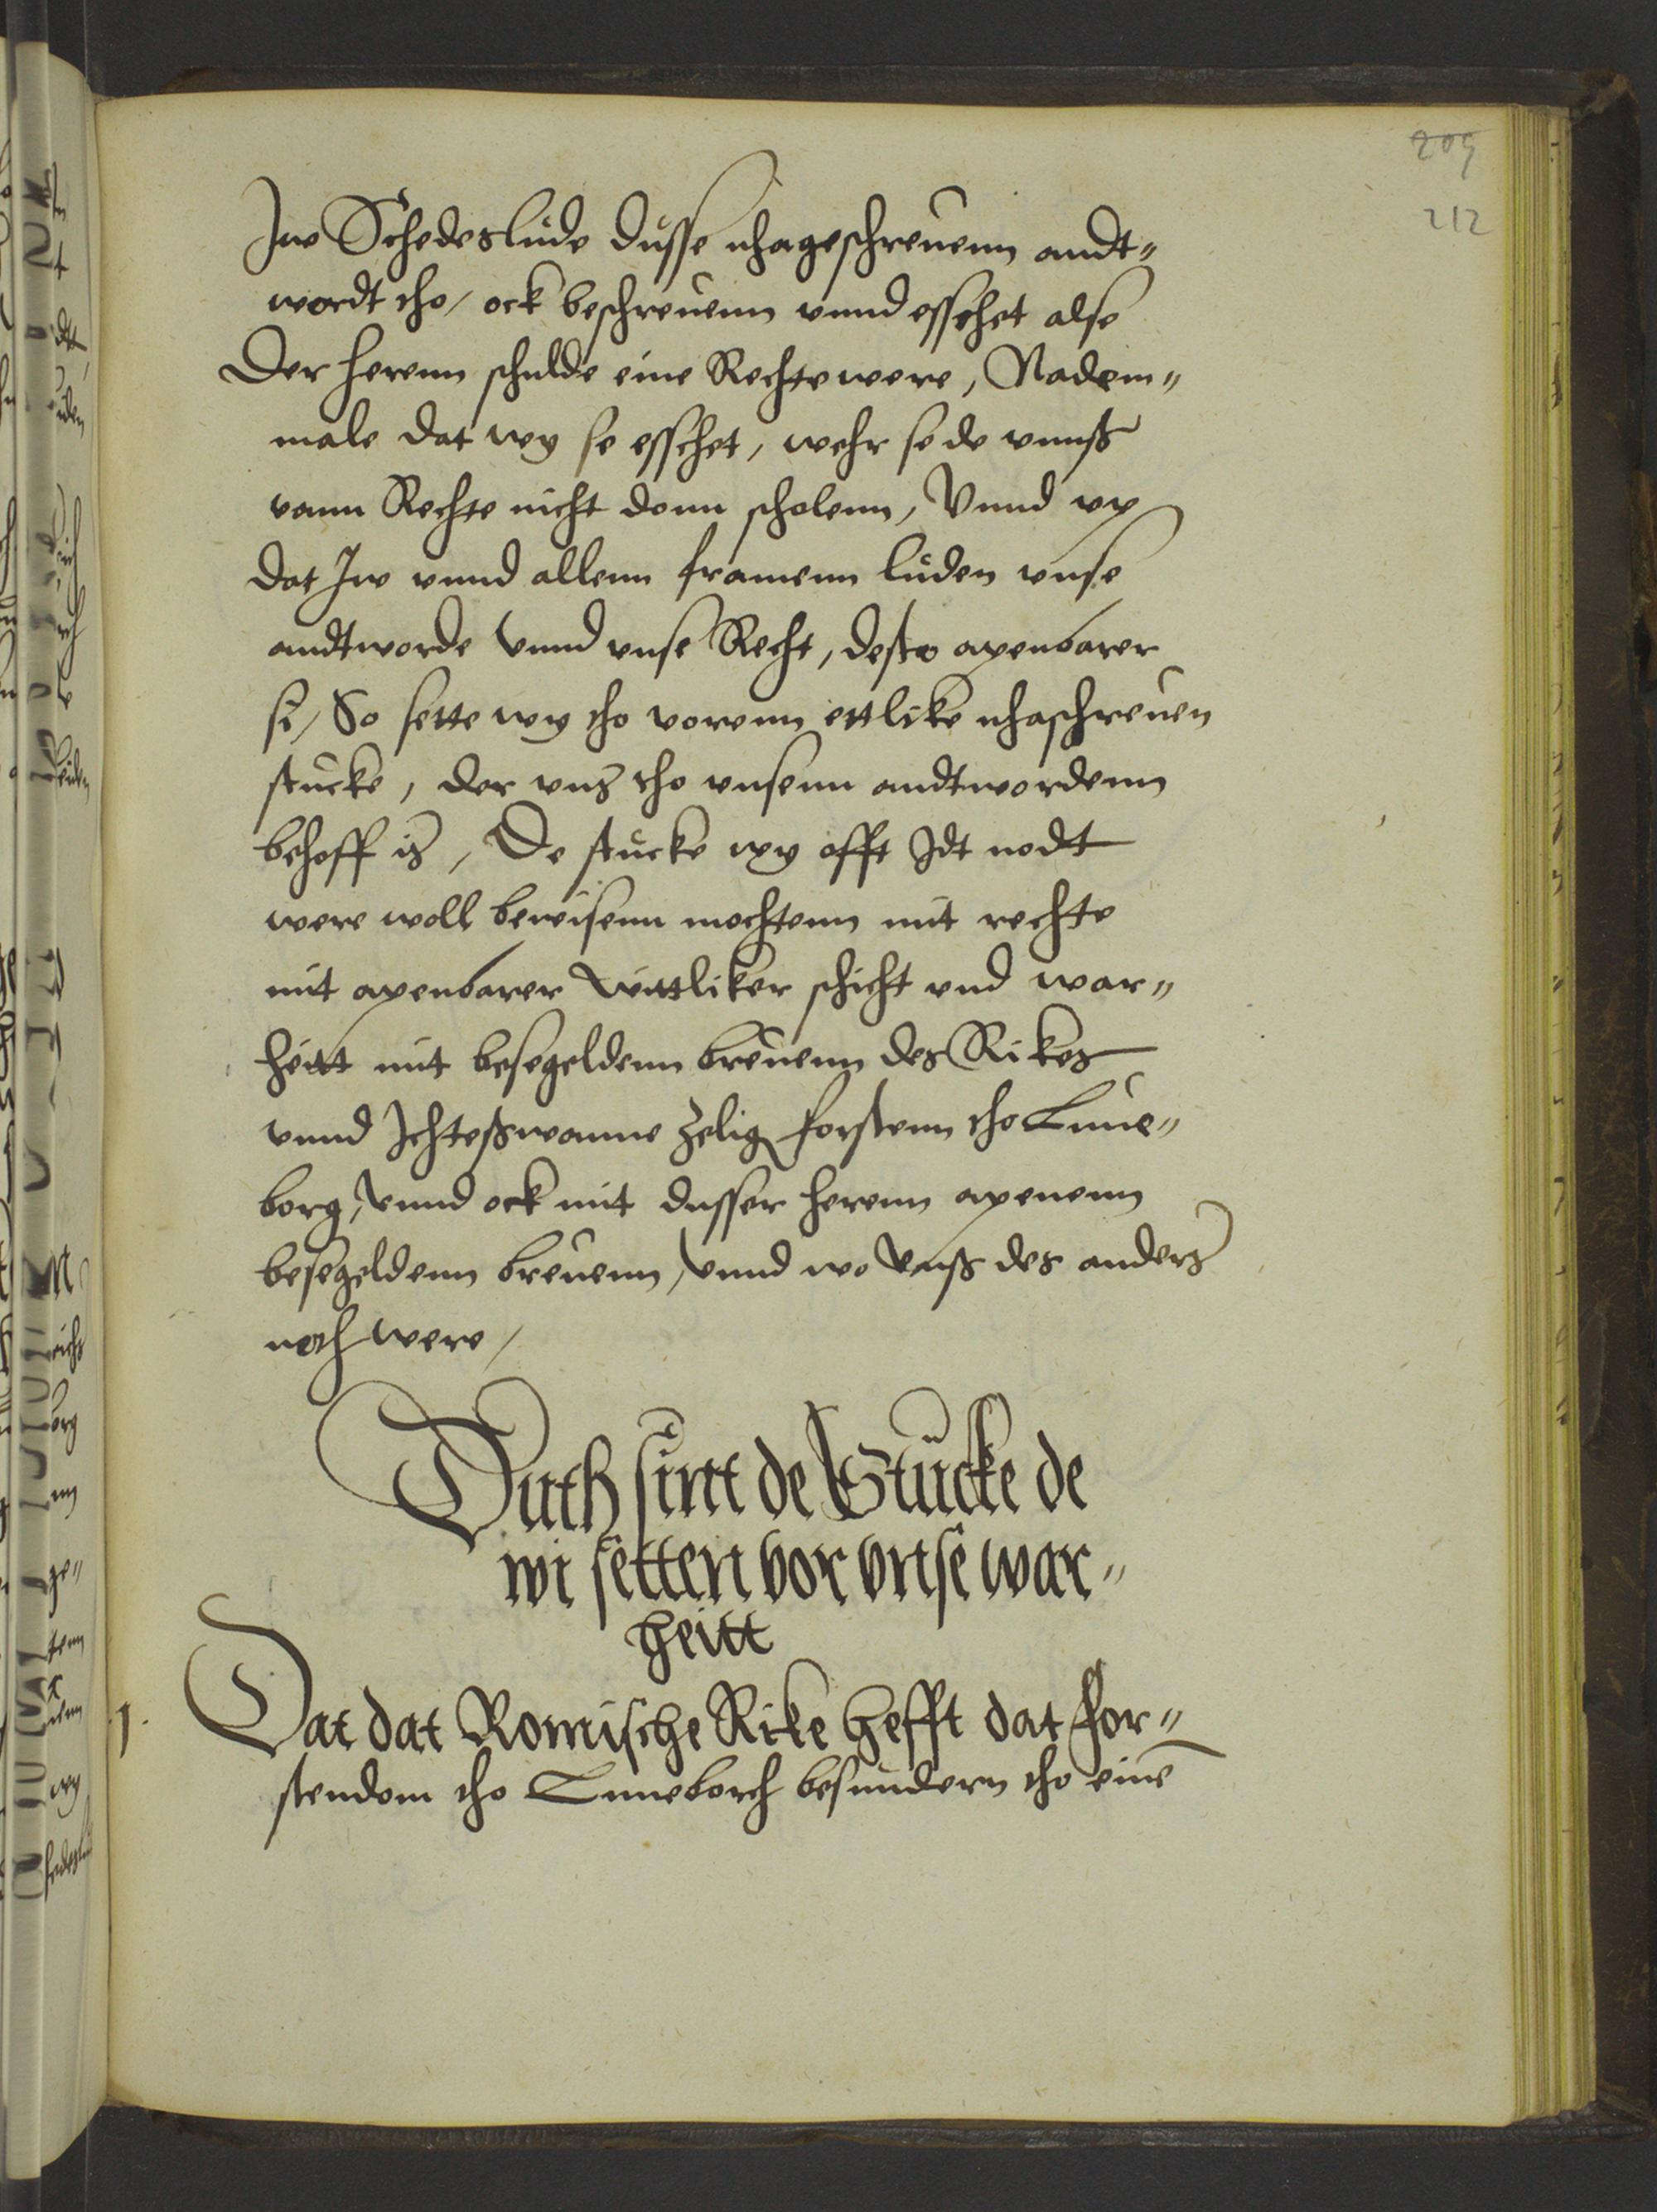 209
212
Jw Schedeslude dusse nhageschreuenn andt„
wordt tho / ock beschreuenn vnnd esschet alse
Der herenn schulde eine Rechte were, Nadem„
male dat wy se esschet, wehr se de vnnß
vann Rechte nicht donn scholenn, Vnnd vp
dat Jw vnnd allenn framenn luden vnse
andtworde vnnd vnse Recht, desto apenbarer
si / So sette wy tho vorenn ettlike nhaschreuen
stucke, der vnß tho vnsenn andtwordenn
behoff iß, De stucke wy offt Jdt nodt
were woll bewisenn mochtenn mit rechte
mit apenbarer wittliker schicht vnd war„
heitt mit besegeldenn breuenn des Rikes
vnnd Jchteßwanne zelig forstenn tho Lune„
borg, vnnd ock mit dusser herenn apenenn
besegeldenn breuenn, vnnd wo vnß des anders
noth were /
Duth sint de Stucke de
wi setten vor vnse war„
heitt
1. Dat dat Romische Rike hefft dat for„
stendom tho Luneborch besundern tho eine